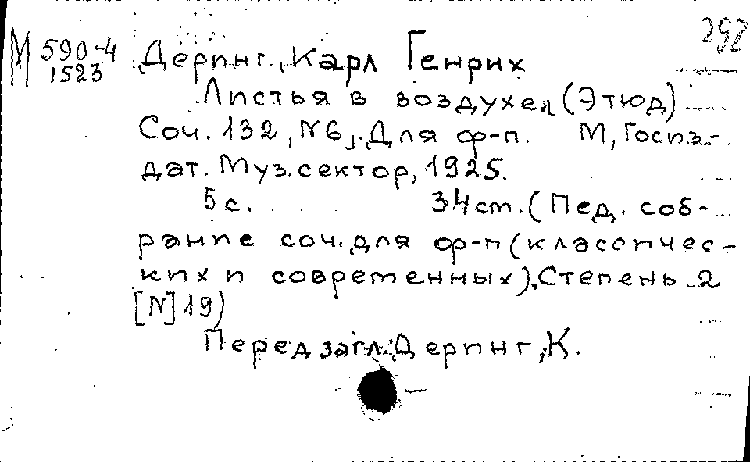 292
М 590-4 Деринг, Карл Генрих
1523
Листья в воздухе. (Этюд)
Соч. 132, №6. Для ф-п. М, Госиз-
дат. Муз. сектор, 1925.
5 с. 34 cm. (Пед. соб-
рание соч. для ф-п (классичес-
ких и современных). Степень 2
[N] 19)
Перед загл: Деринг, К.